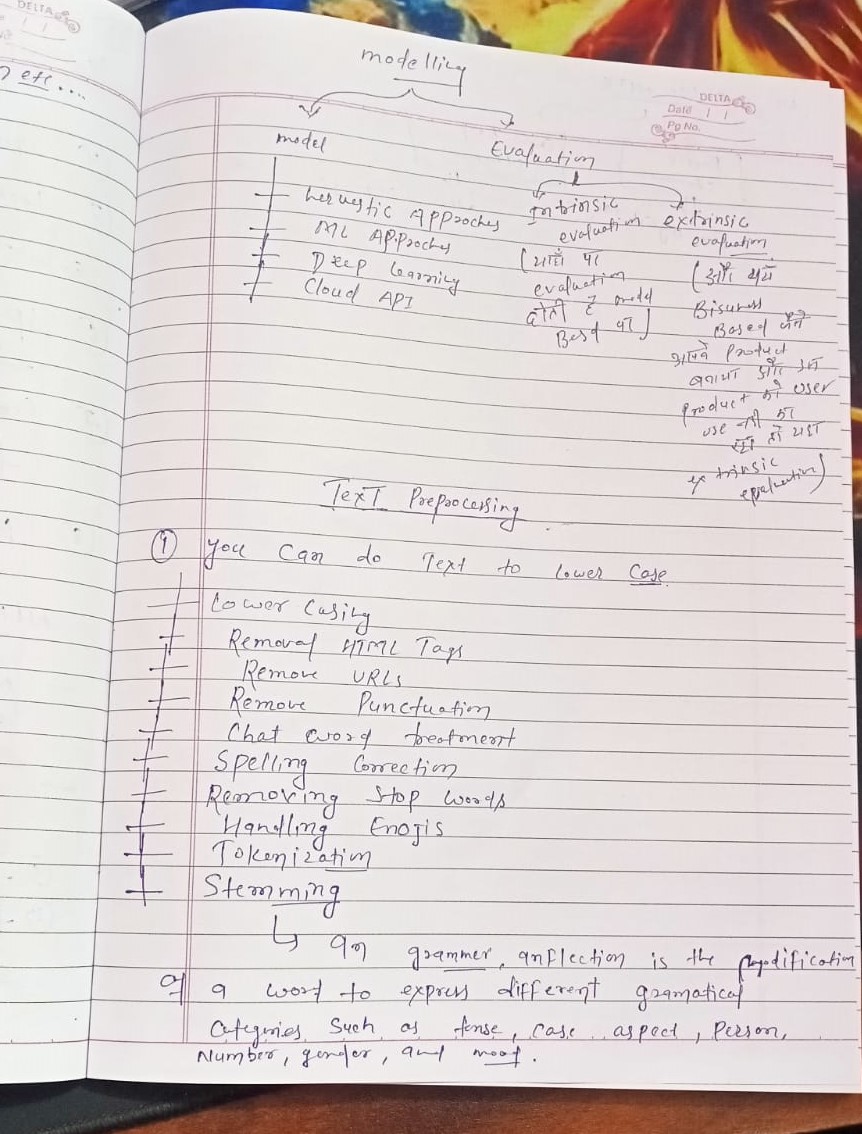 DELTA
etc ....
DELTA
Date / /
Pg No.
modelling
model
Evaluation
heruestic Approches
ML Approches
Deep learning
Cloud API
Intrinsic
evaluation
(यहाँ पर
evaluation
होती है model
Based पर)
extrinsic
evaluation
(और
Bisuness
Based
आपने Product
बनाया और उस
product को user
use
extrinsic
evaluation)
Text Preprocessing
① you can do Text to Lower Case
Lower Casing
Removal HTML Tags
Remove URLs
Remove Punctuation
Chat word treatment
Spelling Correction
Removing Stop words
Handling Emojis
Tokenization
Stemming
↳ In grammer, inflection is the modification
of a word to express different gramatical
Categories Such as tense, case aspect, Person,
Number, gender, and mood.